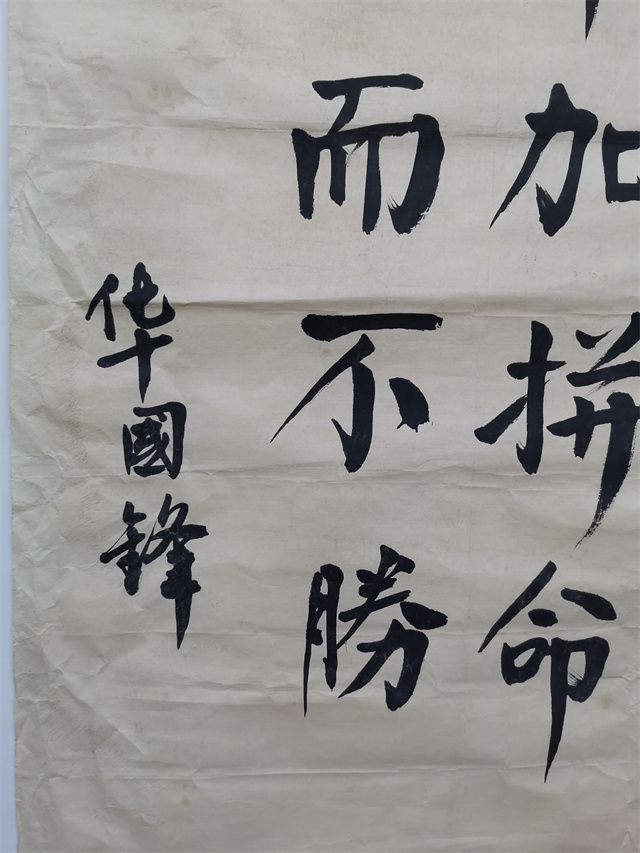 加拼命
而不勝
华國鋒